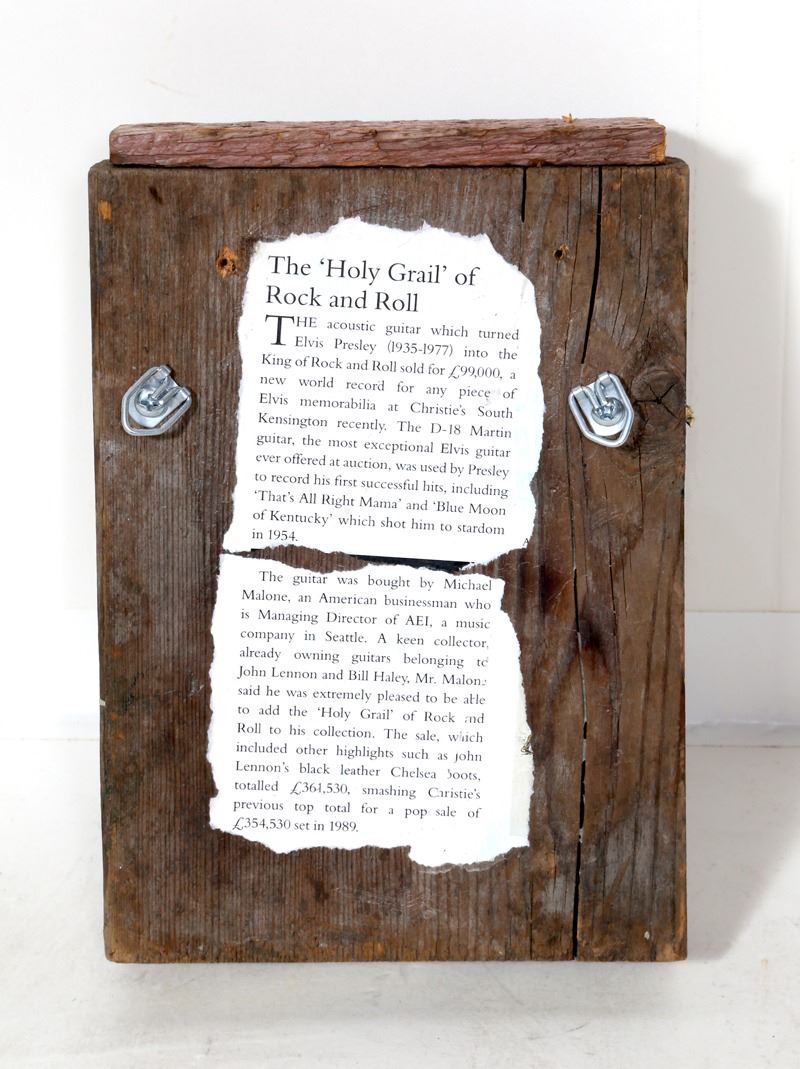 The ‘Holy Grail’ of
Rock and Roll
THE acoustic guitar which turned
Elvis Presley (1935-1977) into the
King of Rock and Roll sold for £99,000, a
new world record for any piece of
Elvis memorabilia at Christie's South
Kensington recently. The D-18 Martin
guitar, the most exceptional Elvis guitar
ever offered at auction, was used by Presley
to record his first successful hits, including
‘That's All Right Mama’ and ‘Blue Moon
of Kentucky’ which shot him to stardom
in 1954.
The guitar was bought by Michael
Malone, an American businessman who
is Managing Director of AEI, a music
company in Seattle. A keen collector,
already owning guitars belonging to
John Lennon and Bill Haley, Mr. Malone
said he was extremely pleased to be able
to add the ‘Holy Grail’ of Rock and
Roll to his collection. The sale, which
included other highlights such as John
Lennon's black leather Chelsea boots,
totalled £361,530, smashing Christie's
previous top total for a pop sale of
£354,530 set in 1989.